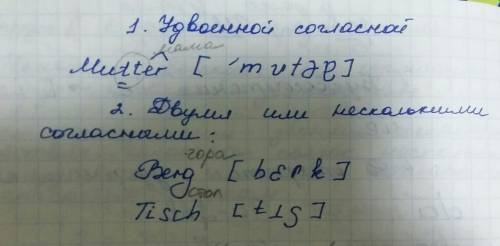 1. Удвоенной согласной
мама
Mutter [ˈmʊtəɐ]
2. Двумя или несколькими
согласными:
гора
Berg [bɛrk]
стол
Tisch [tɪʃ]